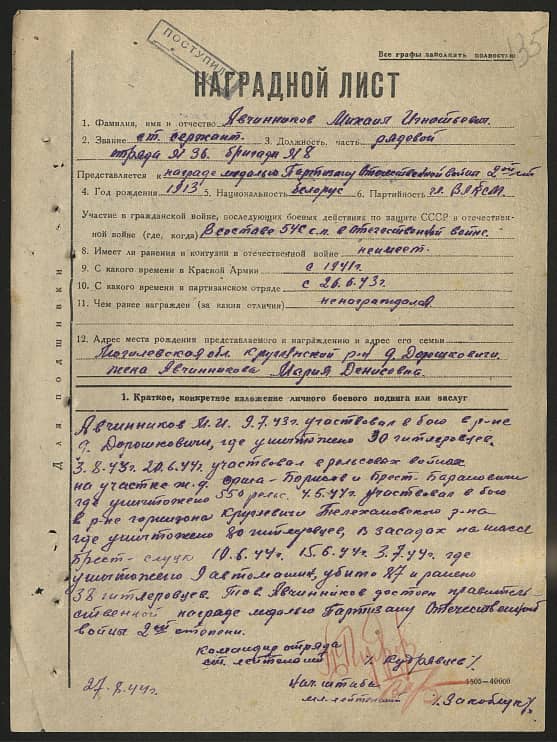 ПОСТУПИЛ
Все графы заполнять полностью
135
НАГРАДНОЙ ЛИСТ
1. Фамилия, имя и отчество Явчинников Михаил Игнатьевич
2. Звание ст. сержант. 3. Должность, часть рядовой
отряда №36 бригады №8
Представляется к награде медалью Партизану Отечественной войны 2ой ст
4. Год рождения 1913 5. Национальность белорус 6. Партийность чл. ВЛКСМ
Участие в гражданской войне, последующих боевых действиях по защите СССР и отечествен-
ной войне (где, когда) В составе 540 с.п. в Отечественной войне.
8. Имеет ли ранения и контузии в отечественной войне неимеет.
9. С какого времени в Красной Армии с 1941г.
10. С какого времени в партизанском отряде с 26.6.43г.
11. Чем ранее награжден (за какия отличия) ненаграждался
12. Адрес места рождения представляемого к награждению и адрес его семьи
Могилевская обл. Круглянский р-н д. Дорошковичи
жена Явчинникова Мария Денисовна.
Для подшивки
1. Краткое, конкретное изложение личного боевого подвига или заслуг
Явчинников М.И. 9.7.43г. участвовал в бою в р-не
д. Дорошковичи, где уничтожено 30 гитлеровцев.
3.8.43г. 20.6.44г. участвовал в рельсовых войнах
на участке ж.д. Орша-Борисов и Брест-Барановичи
где уничтожено 550 рельс. 4.5.44г. участвовал в бою
в р-не гарнизона Круглевичи Телехановского р-на
где уничтожено 80 гитлеровцев, в засадах на шассе
Брест-Слуцк 10.6.44г. 15.6.44г. 3.7.44г. где
уничтожено 9 автомашин, убито 87 и ранено
38 гитлеровцев. Тов. Явчинников достоен правитель
ственной награде медалью Партизану Отечественной
войны 2ой степени.
Командир отряда
ст. лейтенант /Кудрявцев/
27.8.44г.
Нач. штаба
мл. лейтенант /Закоблук/
1805-40000